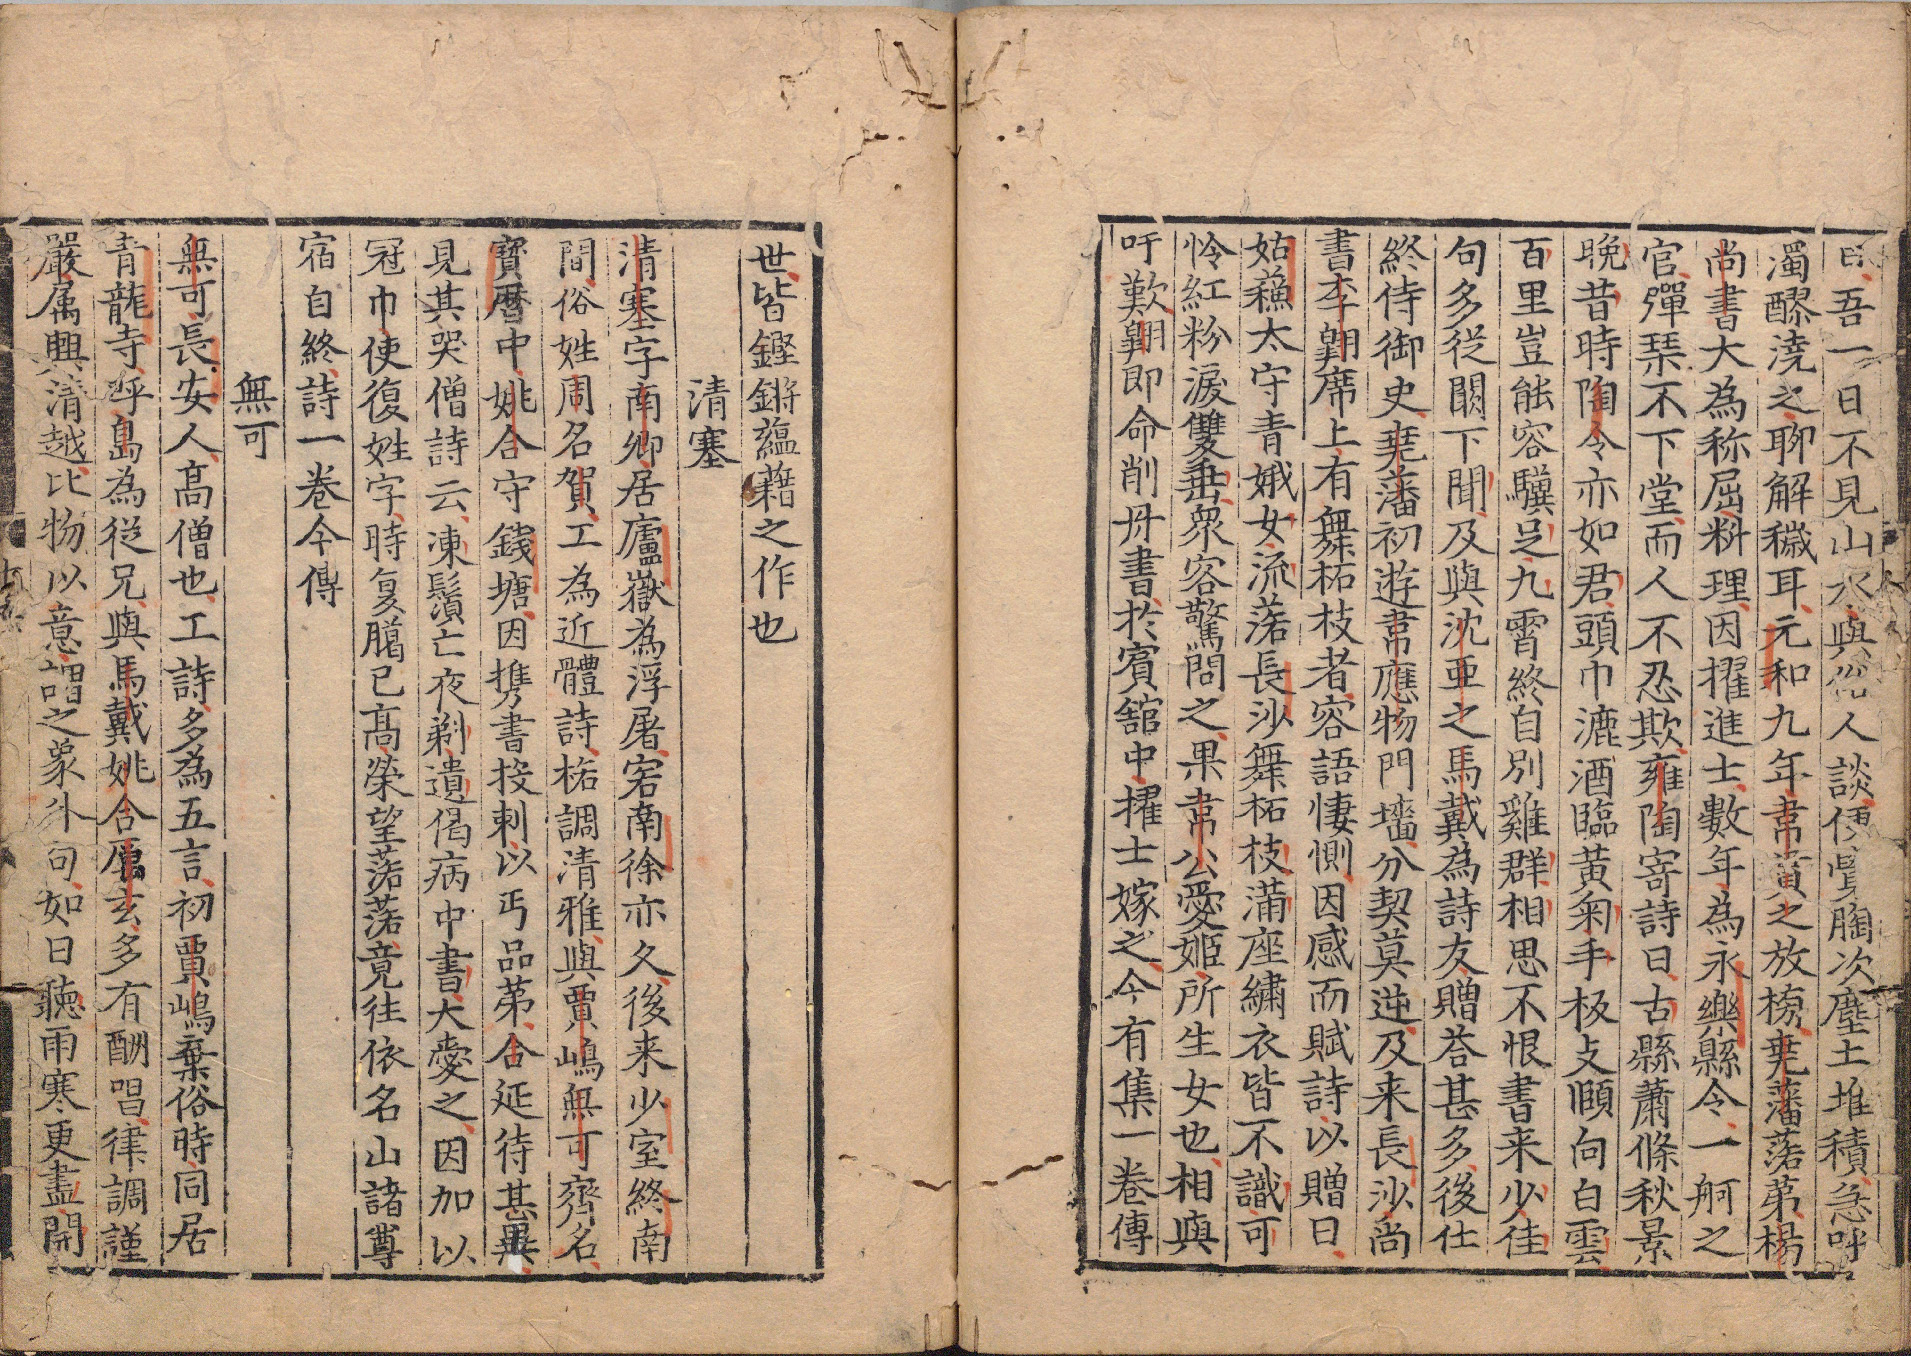 曰吾一日不見山水與俗人談便覺胸次塵土堆積急呼
濁醪澆之聊解穢耳元和九年韋貫之放榜堯藩落第楊
尚書大為称屈料理因擢進士數年為永樂縣令一舸之
官彈琹不下堂而人不忍欺雍陶寄詩曰古縣蕭條秋景
晚昔時陶令亦如君頭巾漉酒臨黃菊手板支頤向白雲
百里豈能容驥足九霄終自別雞群相思不恨書来少佳
句多従闕下聞及與沈亜之馬戴為詩友贈荅甚多後仕
終侍御史堯藩初遊韋應物門墻分契莫逆及来長沙尚
書李翺席上有舞柘枝者容語悽惻因感而賦詩以贈曰
姑蘓太守青娥女流落長沙舞柘枝蒲座繡衣皆不識可
怜紅粉淚雙垂衆客驚問之果韋公愛姬所生女也相與
吁歎翺即命削丹書於賓舘中擢士嫁之今有集一卷傳
世皆鏗鏘蘊藉之作也
清塞
清塞字南卿居廬嶽為浮屠客南徐亦久後来少室終南
間俗姓周名賀工為近體詩格調清雅與賈嶋無可齊名
寳曆中姚合守錢塘因携書投刺以丐品第合延待甚異
見其哭僧詩云凍鬚亡夜剃遺偈病中書大愛之因加以
冠巾使復姓字時夏臈已高榮望落落竟往依名山諸尊
宿自終詩一卷今傳
無可
無可長安人高僧也工詩多為五言初賈嶋棄俗時同居
青龍寺呼島為従兄與馬戴姚合厲玄多有酬唱律調謹
嚴属興清越比物以意謂之象外句如曰聽雨寒更盡開